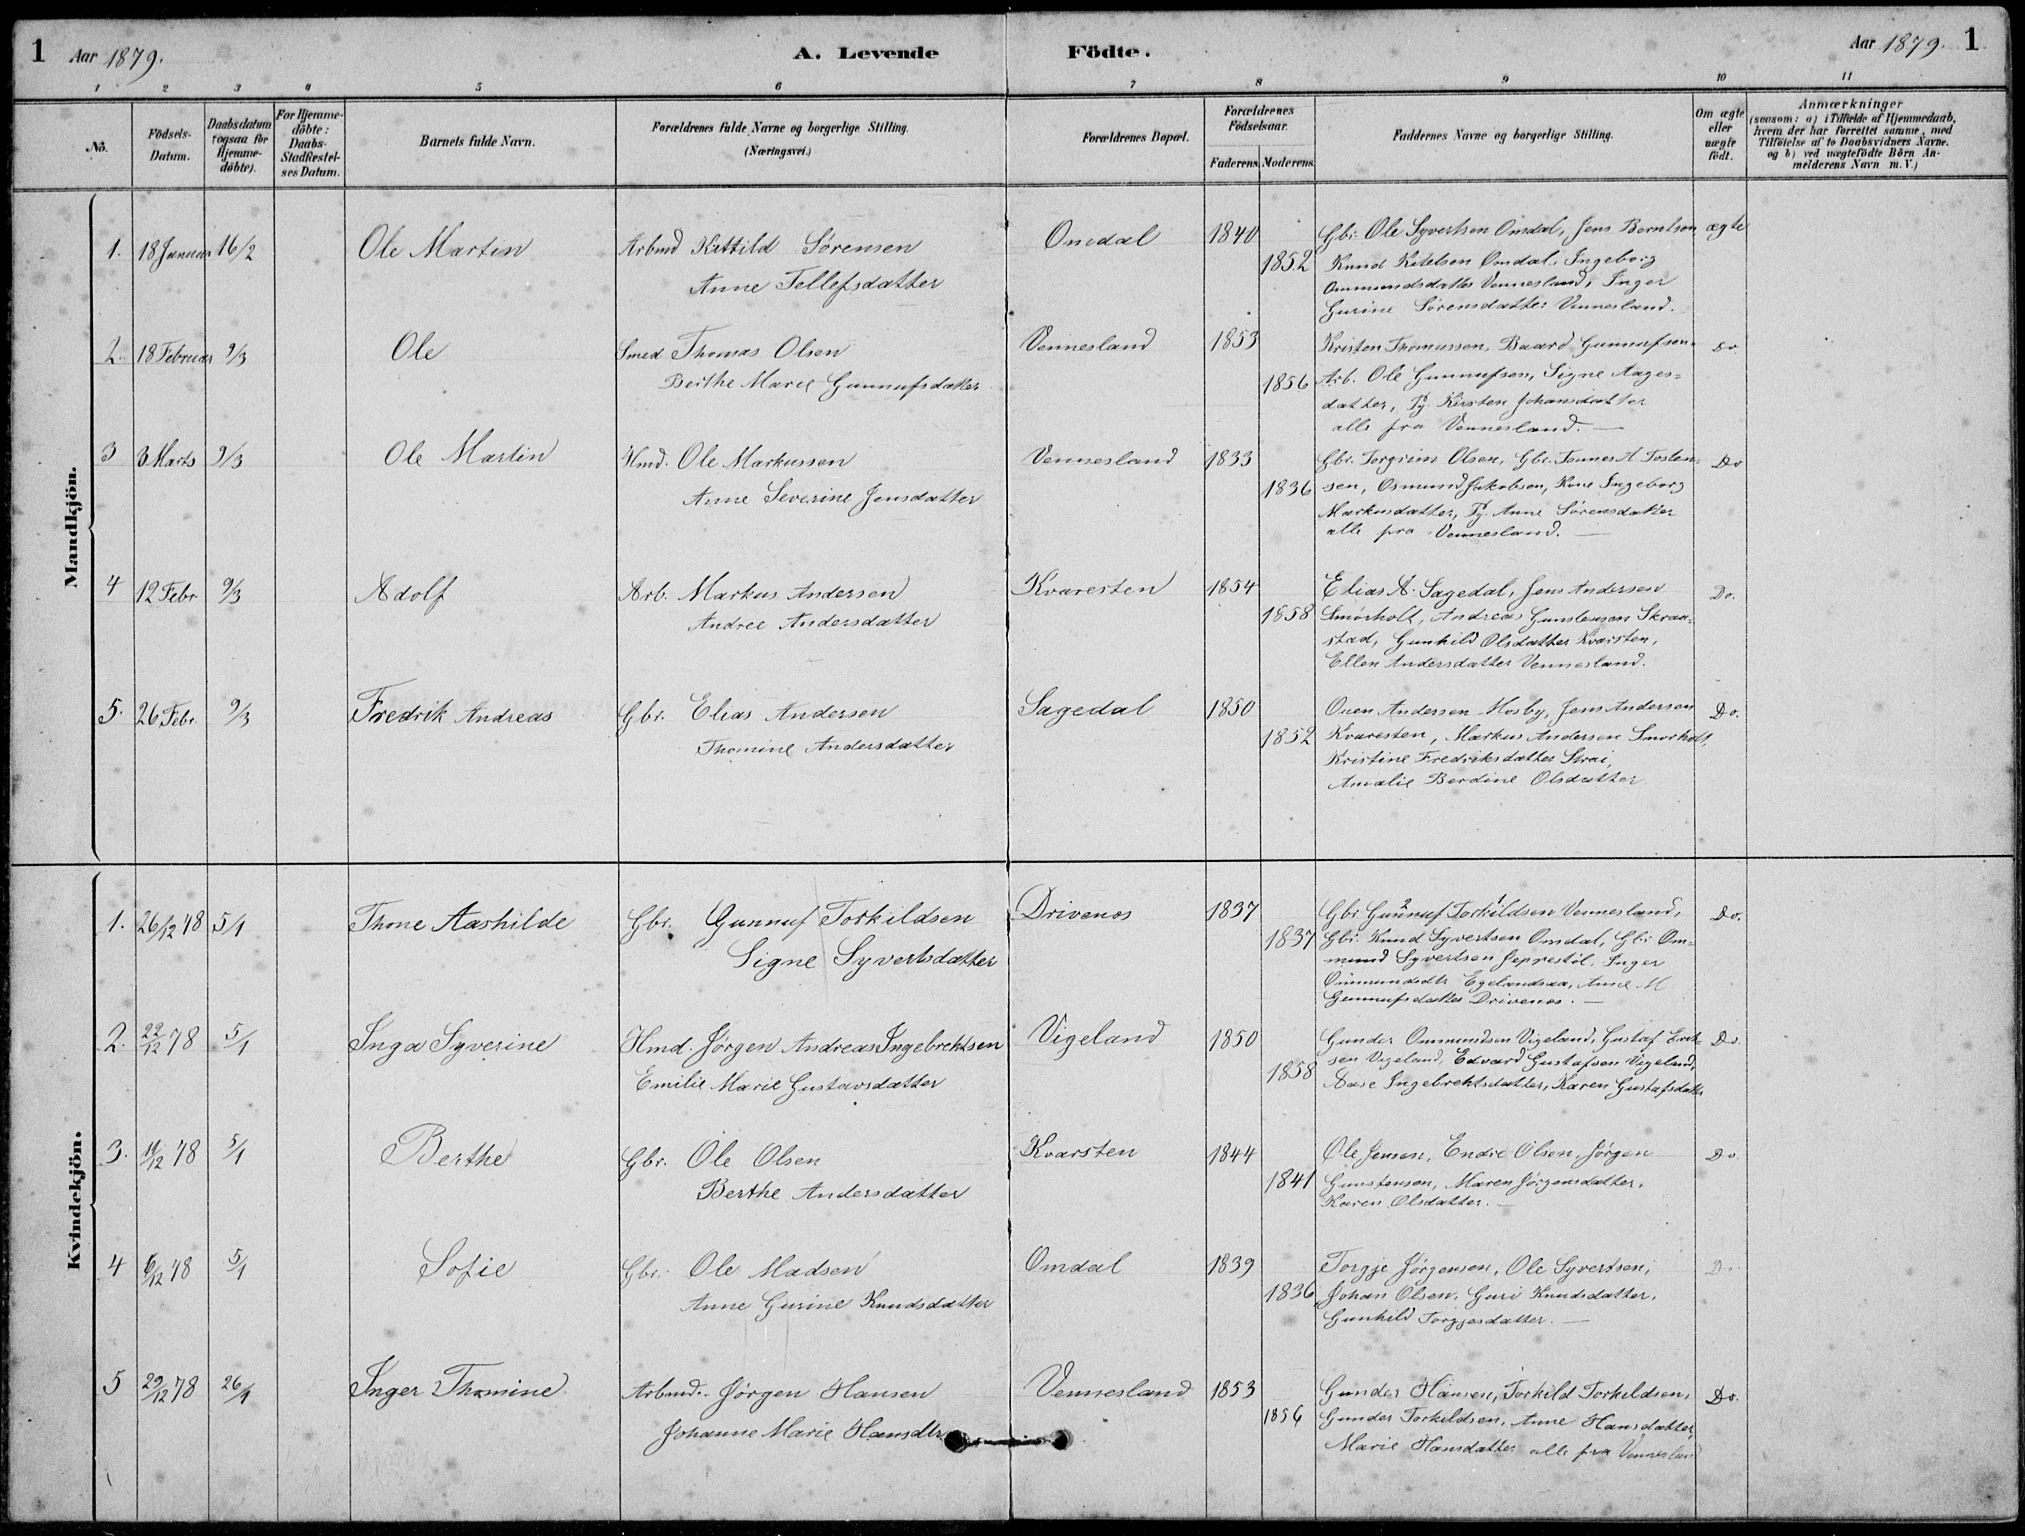 1 Aar 1879.
A. Levende Födte.
Aar 1879. 1
1 2 3 4 5 6 7 8 9 10 11
No.
Födsels-
Datum.
Daabsdatum
(ogsaa for
Hjemme-
döbte).
For Hjemme-
döbte:
Daabs-
Stadfæstel-
ses Datum.
Barnets fulde Navn.
Forældrenes fulde Navne og borgerlige Stilling.
(Næringsvei.)
Forældrenes Bopæl.
Forældrenes
Födselsaar.
Faderens Moderens
Faddernes Navne og borgerlige Stilling.
Om ægte
eller
uægte
födt.
Anmærkninger
(saasom: a) i Tilfælde af Hjemmedaab,
hvem der har forrettet samme, med
Tilföielse af to Daabsvidners Navne,
og b) ved uægtefödte Börn An-
melderens Navn m.V.)
Mandkjön.
1. 18 Januar 16/2 Ole Martin Arbmd Kittild Sørensen Omdal 1840 Gbr. Ole Syvertsen Omdal, Jens Berntsen ægte
Anne Tellefsdatter 1852 Knud Kitelsen Omdal, Ingeborg
Ommundsdatter Vennesland, Inger
Gurine Sørensdatter Vennesland.
2. 18 Februar 9/3 Ole Smed Thomas Olsen Vennesland 1853 Kristen Thomassen, Baard Gunnufsen Do
Berthe Marie Gunnufsdatter 1856 Arb. Ole Gunnufsen, Signe Aages=
datter, Pg. Kirsten Johansdatter
alle fra Vennesland. —
3 3 Marts 9/3 Ole Martin Hmd. Ole Markussen Vennesland 1833 Gbr. Torgrim Olsen, Gbr. Tønnes A Tosten= Do
Anne Severine Jensdatter 1836 sen, Osmund Jakobsen, Kone Ingeborg
Markusdatter, Pg. Anne Sørensdatter
alle fra Vennesland. —
4 12 Febr 9/3 Adolf Arb. Markus Andersen Kvaresten 1854 Elias A. Sagedal, Jens Andersen Do.
Andree Andersdatter 1858 Smørholt, Andreas Gunstensen Skraa=
stad, Gunhild Olsdatter Kvarsten,
Ellen Andersdatter Vennesland.
5. 26 Febr. 9/3 Fredrik Andreas Gbr. Elias Andersen Sagedal 1850 Ouen Andersen Mosby, Jens Andersen Do.
Thomine Andersdatter 1852 Kvaresten, Markus Andersen Smørholt,
Kristine Fredriksdatter Strai,
Amalie Berdine Olsdatter
Kvindekjön.
1. 26/12 78 5/1 Thone Aashilde Gbr. Gunnuf Torkildsen Drivenes 1837 Gbr Gunnuf Torkildsen Vennesland, Do.
Signe Syvertsdatter 1837 Gbr. Knud Syvertsen Omdal, Gbr Om=
mund Syvertsen Jeprestøl. Inger
Ommundsdtr Egelandsaa, Anne M
Gunnufsdatter Drivenes. —
2. 22/12 78 5/1 Inga Syverine Hmd. Jørgen Andreas Ingebrektsen Vigeland 1850 Gunder Ommundsen Vigeland, Gustaf Do.
Emilie Marie Gustavsdatter 1858 sen Vigeland, Edvard Gustafsen Vigeland,
Aase Ingebrektsdatter, Karen Gustafsdatter
3. 11/12 78 5/1 Berthe Gbr. Ole Olsen Kvarsten 1844 Ole Jensen, Endre Olsen, Jørgen Do.
Berthe Andersdatter 1841 Gunstensen, Maren Jørgensdatter,
Karen Olsdatter. —
4 6/12 78 5/1 Sofie Gbr. Ole Madsen Omdal 1839 Torgje Jørgensen, Ole Syvertsen, Do
Anne Gurine Knudsdatter 1836 Johan Olsen, Guri Knudsdatter,
Gunhild Torgjesdatter. —
5 29/12 78 26/1 Inger Thomine Arbmd. Jørgen Hansen Vennesland 1853 Gunder Hansen, Torkild Torkildsen, Do.
Johanne Marie Hansdtr 1856 Gunder Torkildsen, Anne Hansdatter,
Marie Hansdatter alle fra Vennesland